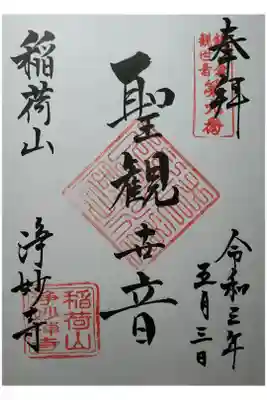 奉拝
令和三年
五月三日
聖観世音
稲荷山
浄妙寺
稲荷山